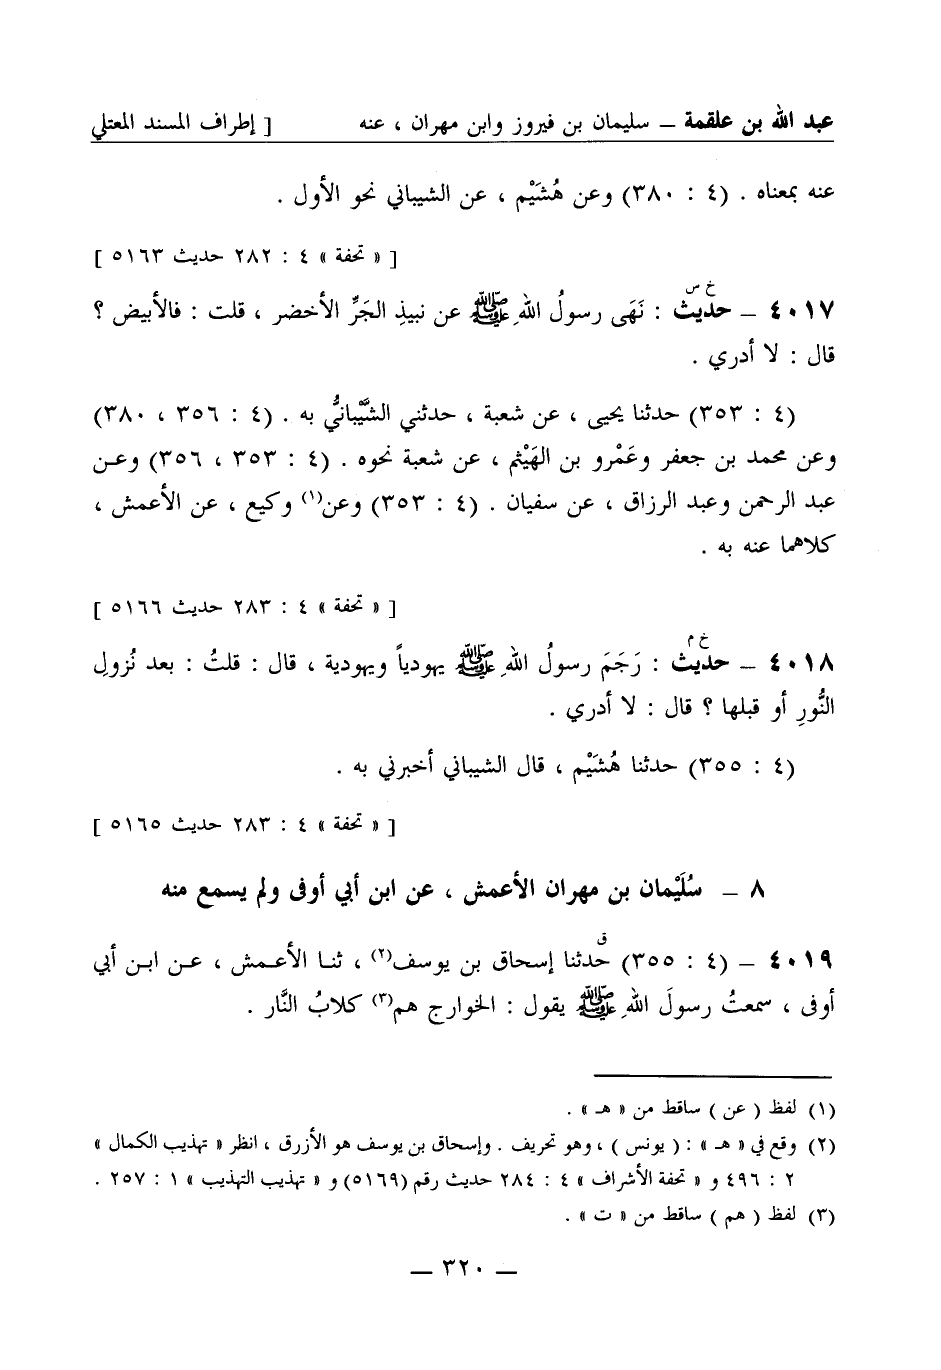 عبد الله بن علقمة ـ سليمان بن فيروز وابن مهران ، عنه [ إطراف المسند المعتلي
عنه بمعناه . (٤ : ٣٨٠) وعن هُشَيْم ، عن الشيباني نحو الأول .
[ « تحفة » ٤ : ٢٨٢ حديث ٥١٦٣ ]
خ س
٤٠١٧ ـ حديث : نَهَى رسولُ اللهِ ﷺ عن نبيذِ الجَرِّ الأخضر ، قلت : فالأبيض ؟
قال : لا أدري .
(٤ : ٣٥٣) حدثنا يحيى ، عن شعبة ، حدثني الشَّيْبانيُّ به . (٤ : ٣٥٦ ، ٣٨٠)
وعن محمد بن جعفر وعَمْرو بن الهَيْثم ، عن شعبة نحوه . (٤ : ٣٥٣ ، ٣٥٦) وعن
عبد الرحمن وعبد الرزاق ، عن سفيان . (٤ : ٣٥٣) وعن(١) وكيع ، عن الأعمش ،
كلاهما عنه به .
[ « تحفة » ٤ : ٢٨٣ حديث ٥١٦٦ ]
خ م
٤٠١٨ ـ حديث : رَجَمَ رسولُ اللهِ ﷺ يهودياً ويهودية ، قال : قلتُ : بعد نُزولِ
النُّورِ أو قبلها ؟ قال : لا أدري .
(٤ : ٣٥٥) حدثنا هُشَيْم ، قال الشيباني أخبرني به .
[ « تحفة » ٤ : ٢٨٣ حديث ٥١٦٥ ]
٨ ـ سُلَيْمان بن مهران الأعمش ، عن ابن أبي أوفى ولم يسمع منه
ق
٤٠١٩ ـ (٤ : ٣٥٥) حدثنا إسحاق بن يوسف(٢) ، ثنا الأعمش ، عن ابن أبي
أوفى ، سمعتُ رسولَ اللهِ ﷺ يقول : الخوارج هم(٣) كلابُ النَّار .
(١) لفظ ( عن ) ساقط من « هـ » .
(٢) وقع في « هـ » : ( يونس ) ، وهو تحريف . وإسحاق بن يوسف هو الأزرق ، انظر « تهذيب الكمال »
٢ : ٤٩٦ و « تحفة الأشراف » ٤ : ٢٨٤ حديث رقم (٥١٦٩) و « تهذيب التهذيب » ١ : ٢٥٧ .
(٣) لفظ ( هم ) ساقط من « ت » .
ـ ٣٢٠ ـ